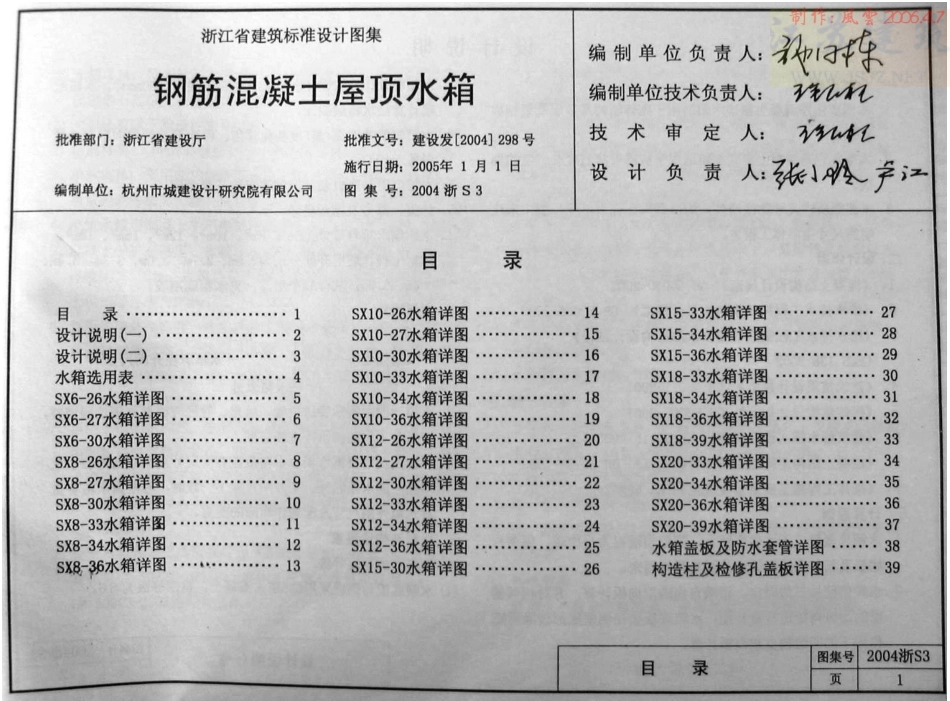 制作:風雲 2006.4.7
浙江省建筑标准设计图集
钢筋混凝土屋顶水箱
批准部门: 浙江省建设厅
批准文号: 建设发[2004]298号
施行日期: 2005年1月1日
编制单位: 杭州市城建设计研究院有限公司
图集号: 2004浙S3
编制单位负责人:
编制单位技术负责人:
技术审定人:
设计负责人: 张小玲 芦江
目 录
目 录 1
设计说明(一) 2
设计说明(二) 3
水箱选用表 4
SX6-26水箱详图 5
SX6-27水箱详图 6
SX6-30水箱详图 7
SX8-26水箱详图 8
SX8-27水箱详图 9
SX8-30水箱详图 10
SX8-33水箱详图 11
SX8-34水箱详图 12
SX8-36水箱详图 13
SX10-26水箱详图 14
SX10-27水箱详图 15
SX10-30水箱详图 16
SX10-33水箱详图 17
SX10-34水箱详图 18
SX10-36水箱详图 19
SX12-26水箱详图 20
SX12-27水箱详图 21
SX12-30水箱详图 22
SX12-33水箱详图 23
SX12-34水箱详图 24
SX12-36水箱详图 25
SX15-30水箱详图 26
SX15-33水箱详图 27
SX15-34水箱详图 28
SX15-36水箱详图 29
SX18-33水箱详图 30
SX18-34水箱详图 31
SX18-36水箱详图 32
SX18-39水箱详图 33
SX20-33水箱详图 34
SX20-34水箱详图 35
SX20-36水箱详图 36
SX20-39水箱详图 37
水箱盖板及防水套管详图 38
构造柱及检修孔盖板详图 39
目 录
图集号 2004浙S3
页 1